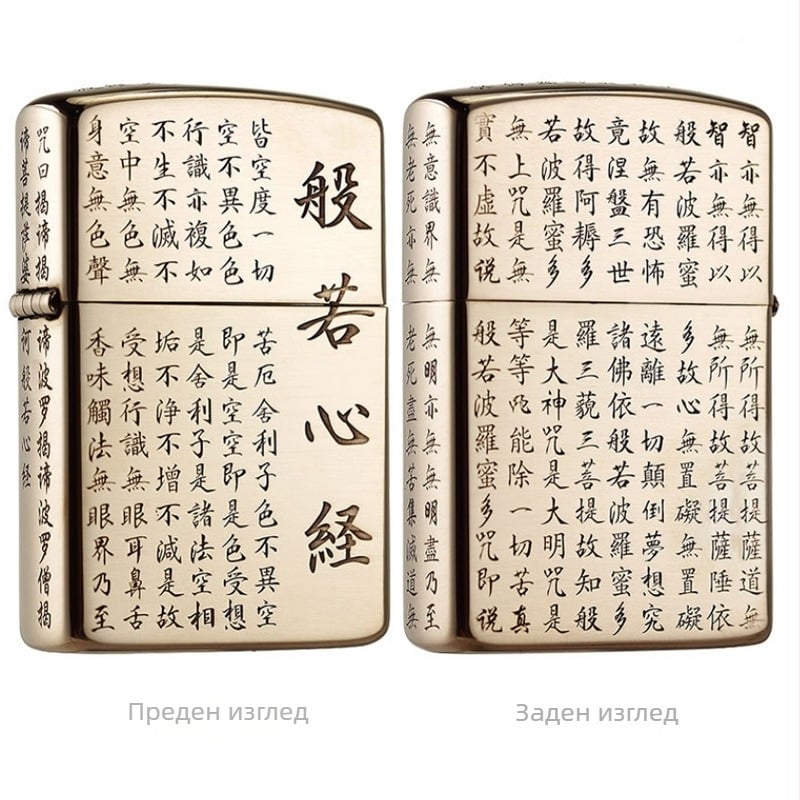 般若心経
皆空度一切苦厄舍利子色不異空
空不異色色即是空空即是色受想
行識亦複如是舍利子是諸法空相
不生不滅不垢不浄不增不減是故
空中無色無受想行識無眼耳鼻舌
身意無色聲香味觸法無眼界乃至
咒曰揭諦揭諦波罗揭諦波罗僧揭
諦菩提婆何般若心経
智亦無得以無所得故菩提薩道無
智亦無得以無所得故菩提薩埵依
般若波羅蜜多故心無置礙無置礙
故無有恐怖遠離一切顛倒夢想究
竟涅盤三世諸佛依般若波羅蜜多
故得阿耨多羅三藐三菩提故知般
若波羅蜜多是大神咒是大明咒是
無上咒是無等等咒能除一切苦真
實不虛故说般若波羅蜜多咒即说
無意識界無無明亦無無明盡乃至
無老死亦無老死盡無苦集滅道無
Преден изглед
Заден изглед